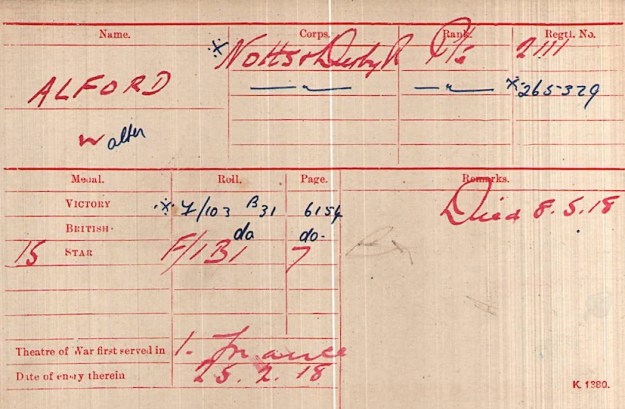 Name. Corps. Rank. Regtl. No.
ALFORD Notts & Derby R Pte 2111
Walter —"— —"— * 265329
Medal. Roll. Page. Remarks.
VICTORY F/103 B31 6154 Died 8.5.18
BRITISH do do
15 STAR F/1 B1 7
Theatre of War first served in 1. France
Date of entry therein 25.2.15
K. 1380.